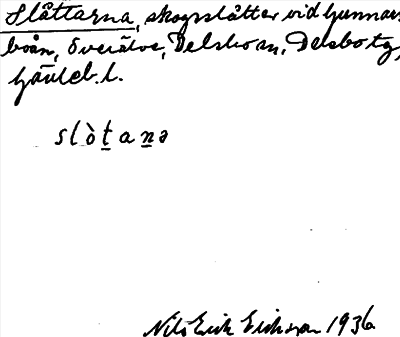 Slåttarna, skogsslåtter vid Gunnars-
boån, Överälve, Delsbo sn, Delsbo tg,
Gävleb. l.
slòṯaṉə
Nils Erik Eriksson 1936